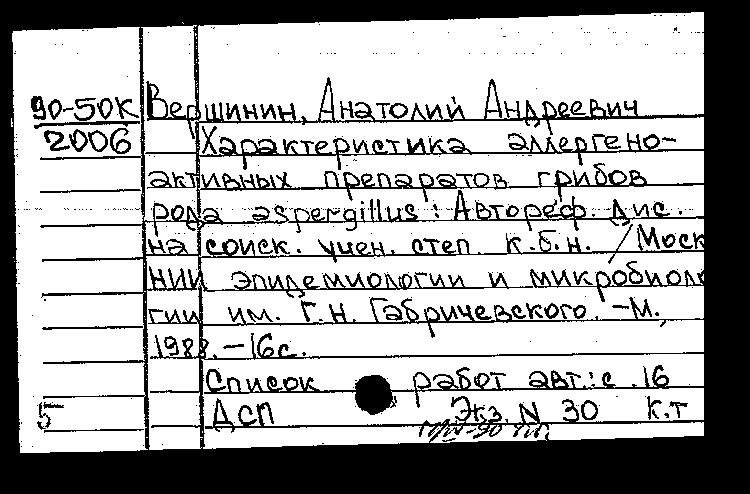 90-50К Вершинин, Анатолий Андреевич
2006 Характеристика аллергено-
активных препаратов грибов
рода aspergillus : Автореф. Дис.
на соиск. учен. степ. к.б.н. / Моск
НИИ эпидемиологии и микробиоло
гии им. Г.Н. Габричевского. -М.,
1988. -16с.
Список работ авт.: с .16
5 ДСП Экз. N 30 К.т